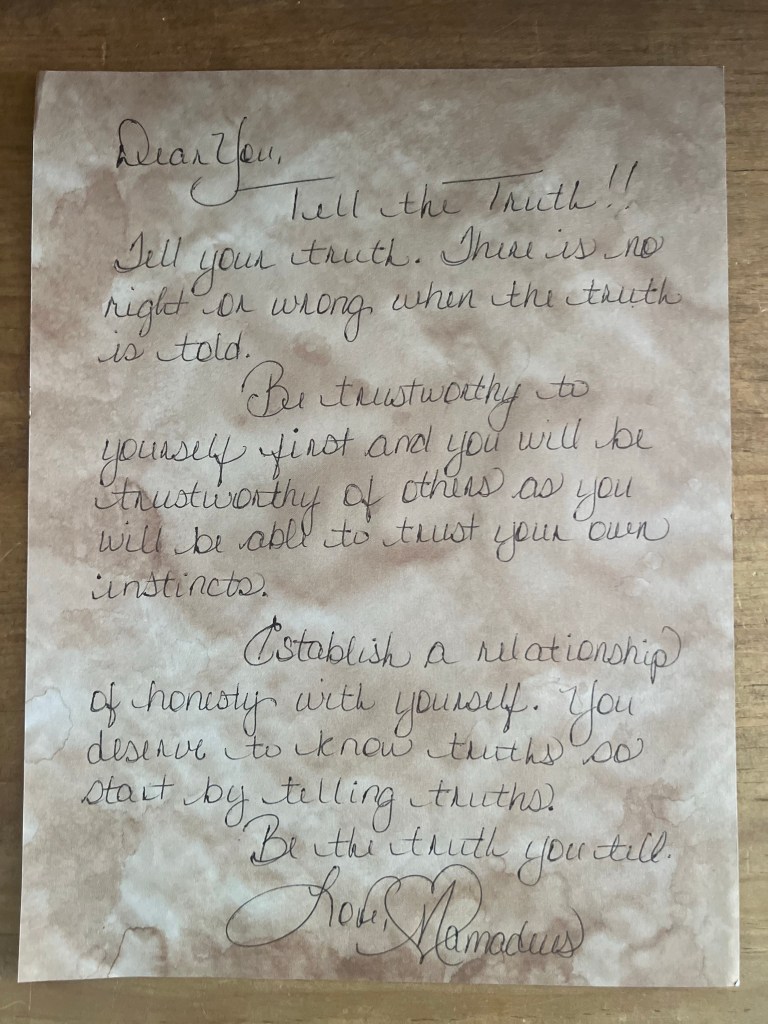 Dear You,
Tell the Truth!!
Tell your truth. There is no
right or wrong when the truth
is told.
Be trustworthy to
yourself first and you will be
trustworthy of others as you
will be able to trust your own
instincts.
Establish a relationship
of honesty with yourself. You
deserve to know truths so
start by telling truths.
Be the truth you tell.
Love,